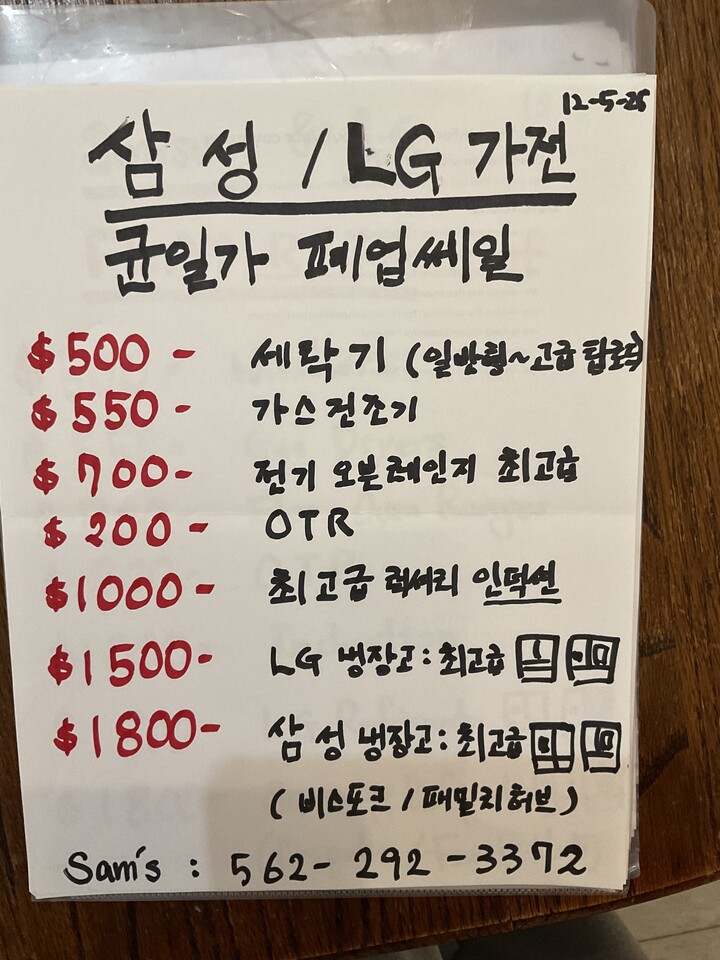 12-5-25
삼성 / LG 가전
균일가 폐업쎄일
$500 - 세탁기 (일반형~고급 탑로딩)
$550 - 가스건조기
$700- 전기 오븐레인지 최고급
$200 - OTR
$1000- 최고급 럭셔리 인덕션
$1500- LG 냉장고: 최고급
$1800- 삼성 냉장고: 최고급
(비스포크 / 패밀리허브)
Sam's : 562-292-3372